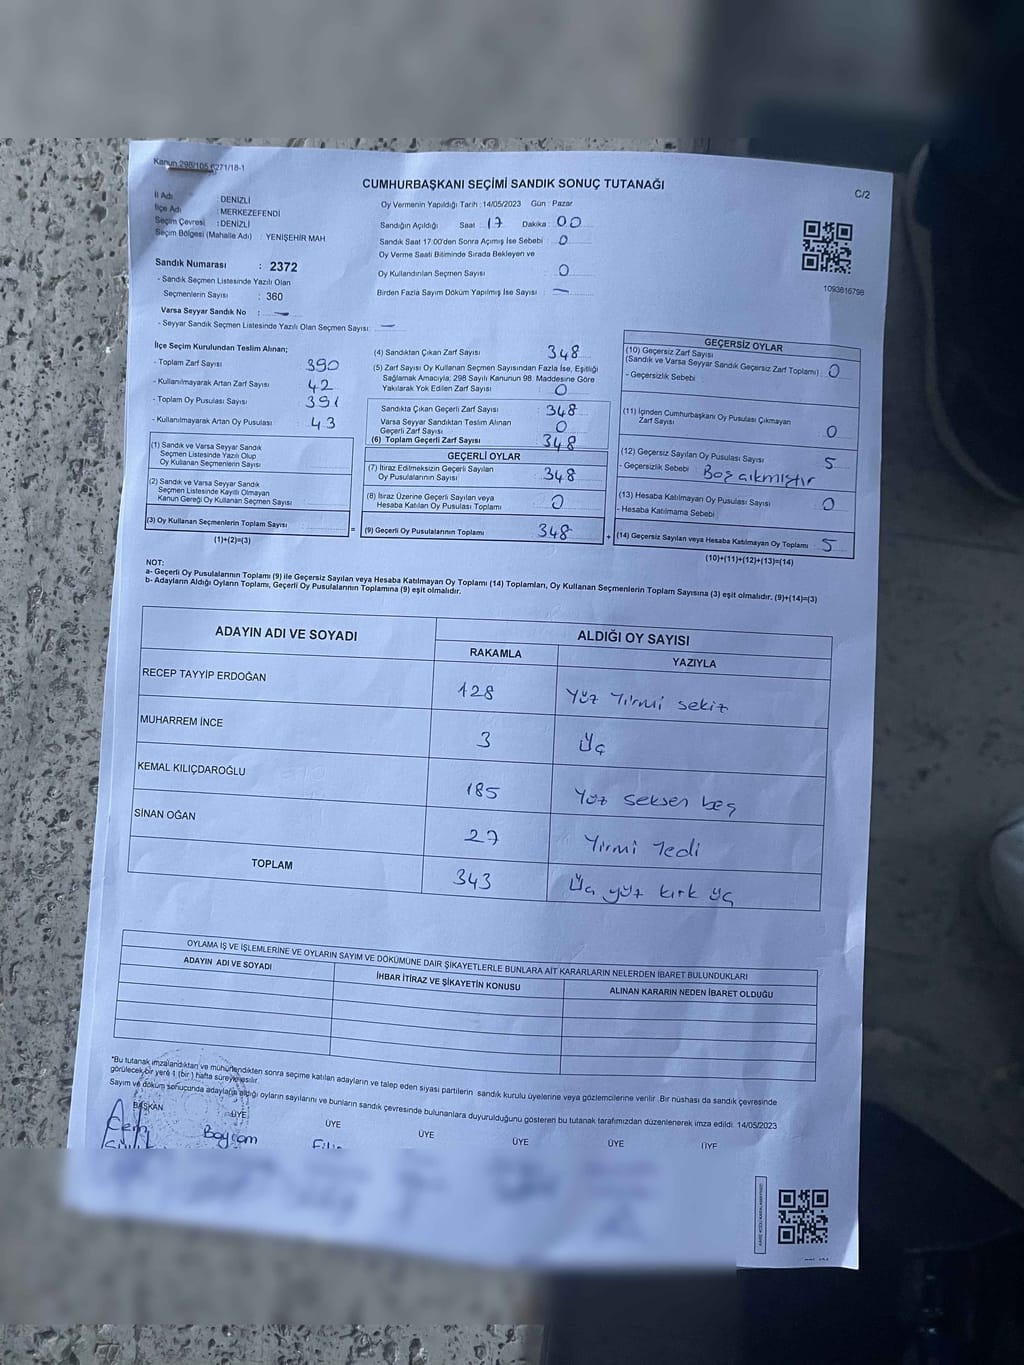 Kanun 298/105,6271/18-1
CUMHURBAŞKANI SEÇİMİ SANDIK SONUÇ TUTANAĞI
C/2
İl Adı : DENİZLİ
İlçe Adı : MERKEZEFENDİ
Seçim Çevresi : DENİZLİ
Seçim Bölgesi (Mahalle Adı) : YENİŞEHİR MAH
Sandık Numarası : 2372
- Sandık Seçmen Listesinde Yazılı Olan
Seçmenlerin Sayısı : 360
Varsa Seyyar Sandık No : —
- Seyyar Sandık Seçmen Listesinde Yazılı Olan Seçmen Sayısı: —
Oy Vermenin Yapıldığı Tarih : 14/05/2023 Gün : Pazar
Sandığın Açıldığı Saat : 17 Dakika : 00
Sandık Saat 17:00'den Sonra Açımış İse Sebebi : 0
Oy Verme Saati Bitiminde Sırada Bekleyen ve
Oy Kullandırılan Seçmen Sayısı : 0
Birden Fazla Sayım Döküm Yapılmış İse Sayısı : —
1093816798
İlçe Seçim Kurulundan Teslim Alınan;
- Toplam Zarf Sayısı : 390
- Kullanılmayarak Artan Zarf Sayısı : 42
- Toplam Oy Pusulası Sayısı : 391
- Kullanılmayarak Artan Oy Pusulası : 43
(1) Sandık ve Varsa Seyyar Sandık
Seçmen Listesinde Yazılı Olup
Oy Kullanan Seçmenlerin Sayısı
(2) Sandık ve Varsa Seyyar Sandık
Seçmen Listesinde Kayıtlı Olmayan
Kanun Gereği Oy Kullanan Seçmen Sayısı
(3) Oy Kullanan Seçmenlerin Toplam Sayısı
(1)+(2)=(3)
=
(4) Sandıktan Çıkan Zarf Sayısı 348
(5) Zarf Sayısı Oy Kullanan Seçmen Sayısından Fazla İse, Eşitliği
Sağlamak Amacıyla; 298 Sayılı Kanunun 98. Maddesine Göre
Yakılarak Yok Edilen Zarf Sayısı : 0
Sandıkta Çıkan Geçerli Zarf Sayısı : 348
Varsa Seyyar Sandıktan Teslim Alınan
Geçerli Zarf Sayısı : 0
(6) Toplam Geçerli Zarf Sayısı : 348
GEÇERLİ OYLAR
(7) İtiraz Edilmeksizin Geçerli Sayılan
Oy Pusulasının Sayısı : 348
(8) İtiraz Üzerine Geçerli Sayılan veya
Hesaba Katılan Oy Pusulası Toplamı 0
(9) Geçerli Oy Pusulalarının Toplamı 348
+
GEÇERSİZ OYLAR
(10) Geçersiz Zarf Sayısı
(Sandık ve Varsa Seyyar Sandık Geçersiz Zarf Toplamı) : 0
- Geçersizlik Sebebi :
(11) İçinden Cumhurbaşkanı Oy Pusulası Çıkmayan
Zarf Sayısı : 0
(12) Geçersiz Sayılan Oy Pusulası Sayısı : 5
- Geçersizlik Sebebi : Boş çıkmıştır
(13) Hesaba Katılmayan Oy Pusulası Sayısı : 0
- Hesaba Katılmama Sebebi :
(14) Geçersiz Sayılan veya Hesaba Katılmayan Oy Toplamı 5
(10)+(11)+(12)+(13)=(14)
NOT:
a- Geçerli Oy Pusulalarının Toplamı (9) ile Geçersiz Sayılan veya Hesaba Katılmayan Oy Toplamı (14) Toplamları, Oy Kullanan Seçmenlerin Toplam Sayısına (3) eşit olmalıdır. (9)+(14)=(3)
b- Adayların Aldığı Oyların Toplamı, Geçerli Oy Pusulalarının Toplamına (9) eşit olmalıdır.
ADAYIN ADI VE SOYADI ALDIĞI OY SAYISI
RAKAMLA YAZIYLA
RECEP TAYYİP ERDOĞAN 128 Yüz Yirmi sekiz
MUHARREM İNCE 3 Üç
KEMAL KILIÇDAROĞLU 185 Yüz seksen beş
SİNAN OĞAN 27 Yirmi Yedi
TOPLAM 343 Üç yüz kırk üç
OYLAMA İŞ VE İŞLEMLERİNE VE OYLARIN SAYIM VE DÖKÜMÜNE DAİR ŞİKAYETLERLE BUNLARA AİT KARARLARIN NELERDEN İBARET BULUNDUKLARI
ADAYIN ADI VE SOYADI İHBAR İTİRAZ VE ŞİKAYETİN KONUSU ALINAN KARARIN NEDEN İBARET OLDUĞU
*Bu tutanak imzalandıktan ve mühürlendikten sonra seçime katılan adayların ve talep eden siyasi partilerin sandık kurulu üyelerine veya gözlemcilerine verilir .Bir nüshası da sandık çevresinde
görülecek bir yere 1 (bir) hafta süreyle asılır.
Sayım ve döküm sonucunda adayların aldığı oyların sayılarını ve bunların sandık çevresinde bulunanlara duyurulduğunu gösteren bu tutanak tarafımızdan düzenlenerek imza edildi. 14/05/2023
BAŞKAN ÜYE ÜYE ÜYE ÜYE ÜYE ÜYE
Cem Bayram